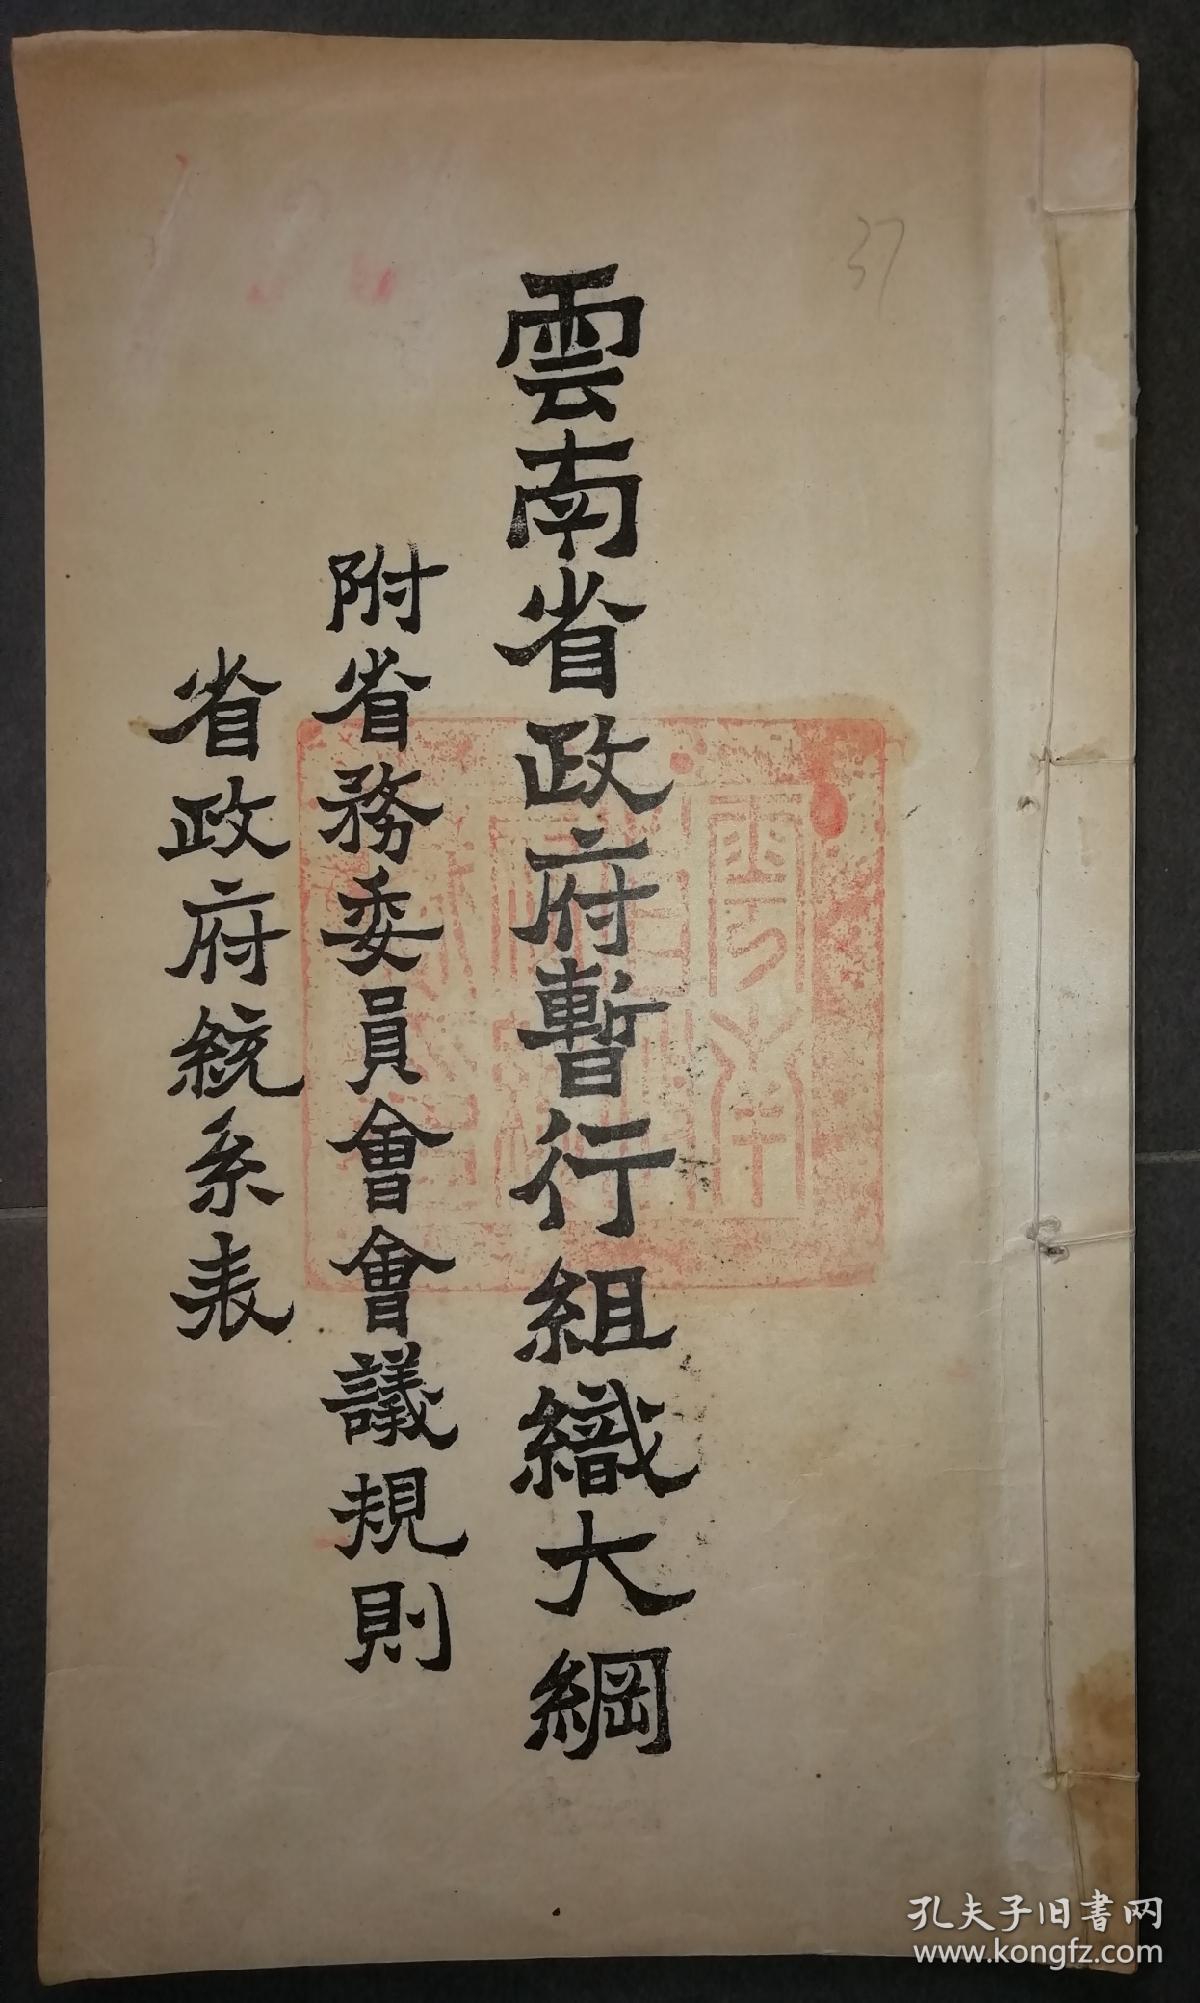 雲南省政府暫行組織大綱
附省務委員會會議規則
省政府統系表
37
孔夫子旧書网
www.kongfz.com